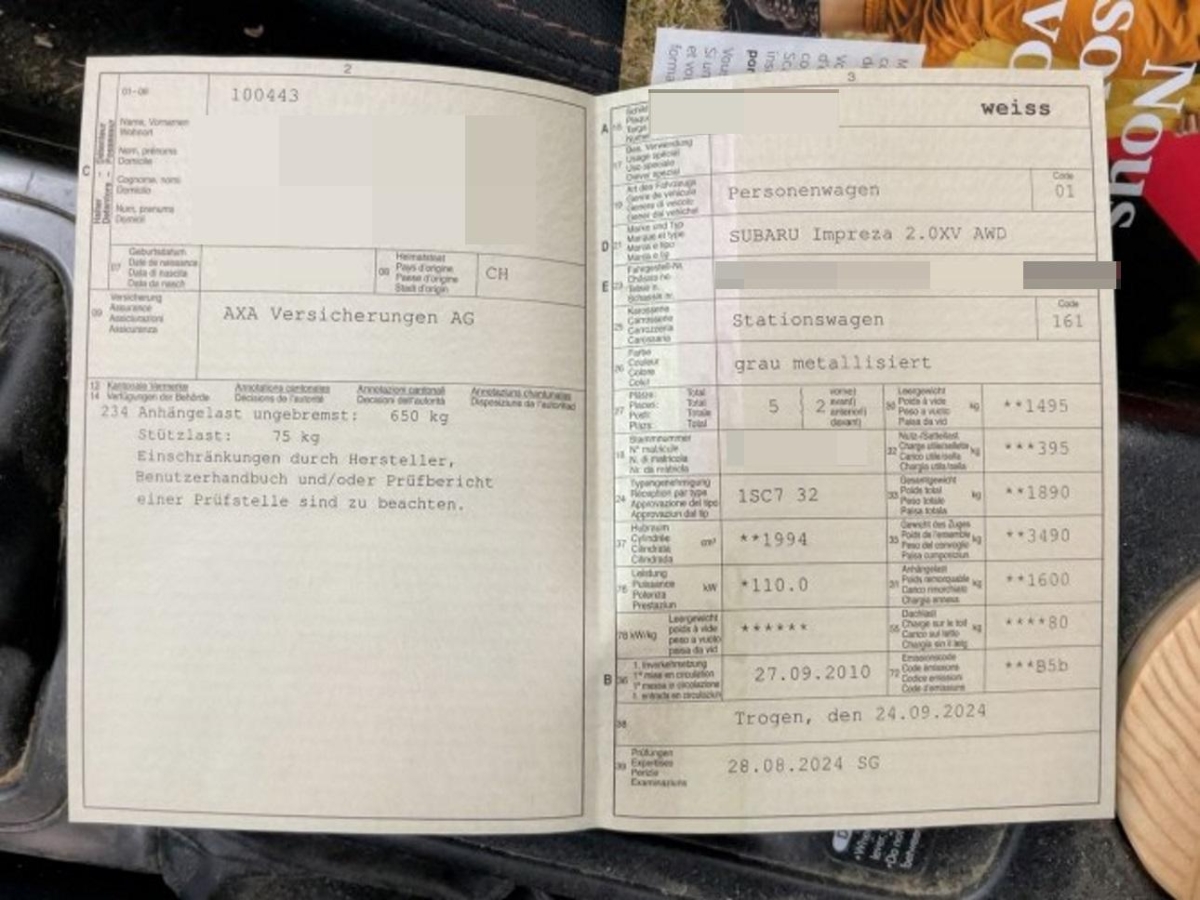 2
01-06
100443
C
Name, Vornamen
Wohnort
Nom, prénoms
Domicile
Cognome, nomi
Domicilio
Num, prenums
Domicil
07
Geburtsdatum
Date de naissance
Data di nascita
Data da nasch
08
Heimatstaat
Pays d'origine
Paese d'origine
Stadi d'origin
CH
09
Versicherung
Assurance
Assicurazioni
Assicuranza
AXA Versicherungen AG
13 Kantonale Vermerke Annotations cantonales Annotazioni cantonali Annotaziuns chantunalas
14 Verfügungen der Behörde Décisions de l'autorité Decisioni dell'autorità Disposiziuns da l'autoritad
234 Anhängelast ungebremst: 650 kg
Stützlast: 75 kg
Einschränkungen durch Hersteller,
Benutzerhandbuch und/oder Prüfbericht
einer Prüfstelle sind zu beachten.
3
A
weiss
17
Bes. Verwendung
Usage spécial
Uso speciale
Diever spezial
19
Art des Fahrzeugs
Genre de véhicule
Genere di veicolo
Gener dal vehichel
Personenwagen
Code
01
D 21
Marke und Typ
Marque et type
Marca e tipo
Marca e tip
SUBARU Impreza 2.0XV AWD
E 23
Fahrgestell-Nr.
Châssis no
Telaio n.
Schassis nr.
25
Karosserie
Carrosserie
Carrozzeria
Carossaria
Stationswagen
Code
161
26
Farbe
Couleur
Colore
Colur
grau metallisiert
27
Plätze: Total
Places: Total
Posti: Totale
Plazs: Total
5
2
vorne)
avant)
anteriori)
davant)
30
Leergewicht
Poids à vide
Peso a vuoto
Paisa da vid
kg
**1495
18
Stammnummer
N° matricule
N. di matricola
Nr. da matricla
32
Nutz-/Sattellast
Charge utile/sellette
Carico utile/sella
Chargia utila/sella
kg
***395
24
Typengenehmigung
Réception par type
Approvazione del tipo
Approvaziun dal tip
1SC7 32
33
Gesamtgewicht
Poids total
Peso totale
Paisa totala
kg
**1890
37
Hubraum
Cylindrée
Cilindrata
Cilindrada
cm³
**1994
35
Gewicht des Zuges
Poids de l'ensemble
Peso del convoglio
Paisa cumposiziun
kg
**3490
76
Leistung
Puissance
Potenza
Prestaziun
kW
*110.0
31
Anhängelast
Poids remorquable
Carico rimorchiato
Chargia annexa
kg
**1600
78 kW/kg
Leergewicht
poids à vide
peso a vuoto
paisa da vid
******
55
Dachlast
Charge sur le toit
Carico sul tetto
Chargia sin il tetg
kg
****80
B 36
1. Inverkehrsetzung
1re mise en circulation
1a messa in circolazione
1. entrada en circulaziun
27.09.2010
72
Emissionscode
Code émissions
Codice emissioni
Code d'emissiuns
***B5b
38
Trogen, den 24.09.2024
39
Prüfungen
Expertises
Perizia
Examinaziuns
28.08.2024 SG
Nous